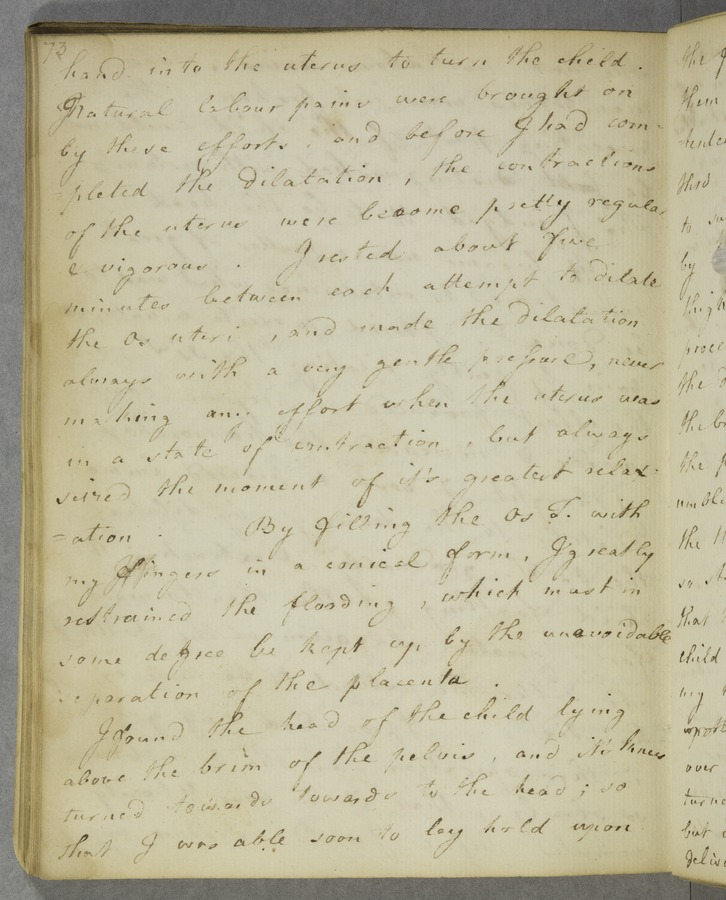 73
hand into the uterus to turn the child.
Natural labour pains were brought on
by these efforts, and before I had com-
=pleted the dilatation, the contractions
of the uterus were become pretty regular
& vigorous. I rested about five
minutes between each attempt to dilate
the os uteri, and made the dilatation
always with a very gentle pressure, never
making any effort when the uterus was
in a state of contraction, but always
seized the moment of it's greatest relax-
=ation. By filling the Os T. with
my fingers in a conical form, I greatly
restrained the flooding, which must in
some degree be kept up by the unavoidable
separation of the placenta.
I found the head of the child lying
above the brim of the pelvis, and it's knees
turned towards towards to the head; so
that I was able soon to lay hold upon
the
them
this
to
by
thigh
the
the
the
the
so
that
child
my
over
turne
but
delive